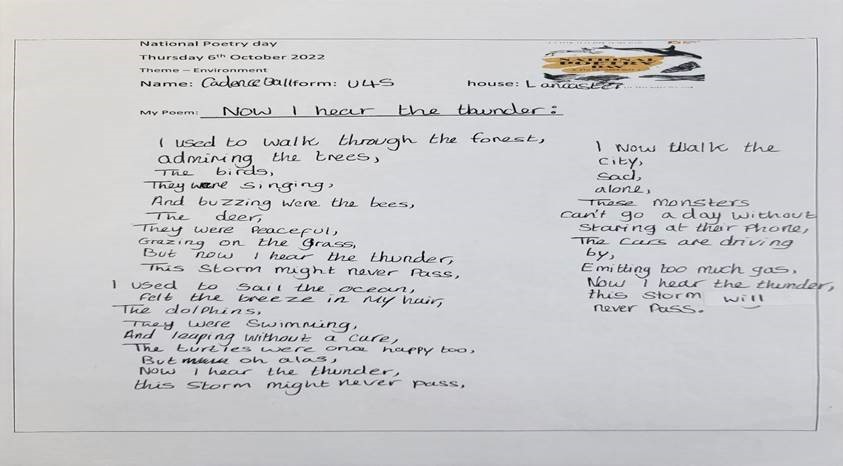 National Poetry day
Thursday 6th October 2022
Theme – Environment
Name: Cadence Ball form: U4S house: Lancaster
NATIONAL
POETRY
DAY
My Poem: Now I hear the thunder:
I used to walk through the forest,
admiring the trees,
The birds,
They were singing,
And buzzing were the bees,
The deer,
They were Peaceful,
Grazing on the Grass,
But now I hear the thunder,
This Storm might never Pass,
I used to sail the ocean,
felt the breeze in my hair,
The dolphins,
They were Swimming,
And leaping without a care,
The turtles were once happy too,
But oh alas,
Now I hear the thunder,
this Storm might never pass,
I Now Walk the
City,
Sad,
alone,
These monsters
Can't go a day without
Staring at their Phone,
The Cars are driving
by,
Emitting too much gas.
Now I hear the thunder,
this storm will
never Pass.